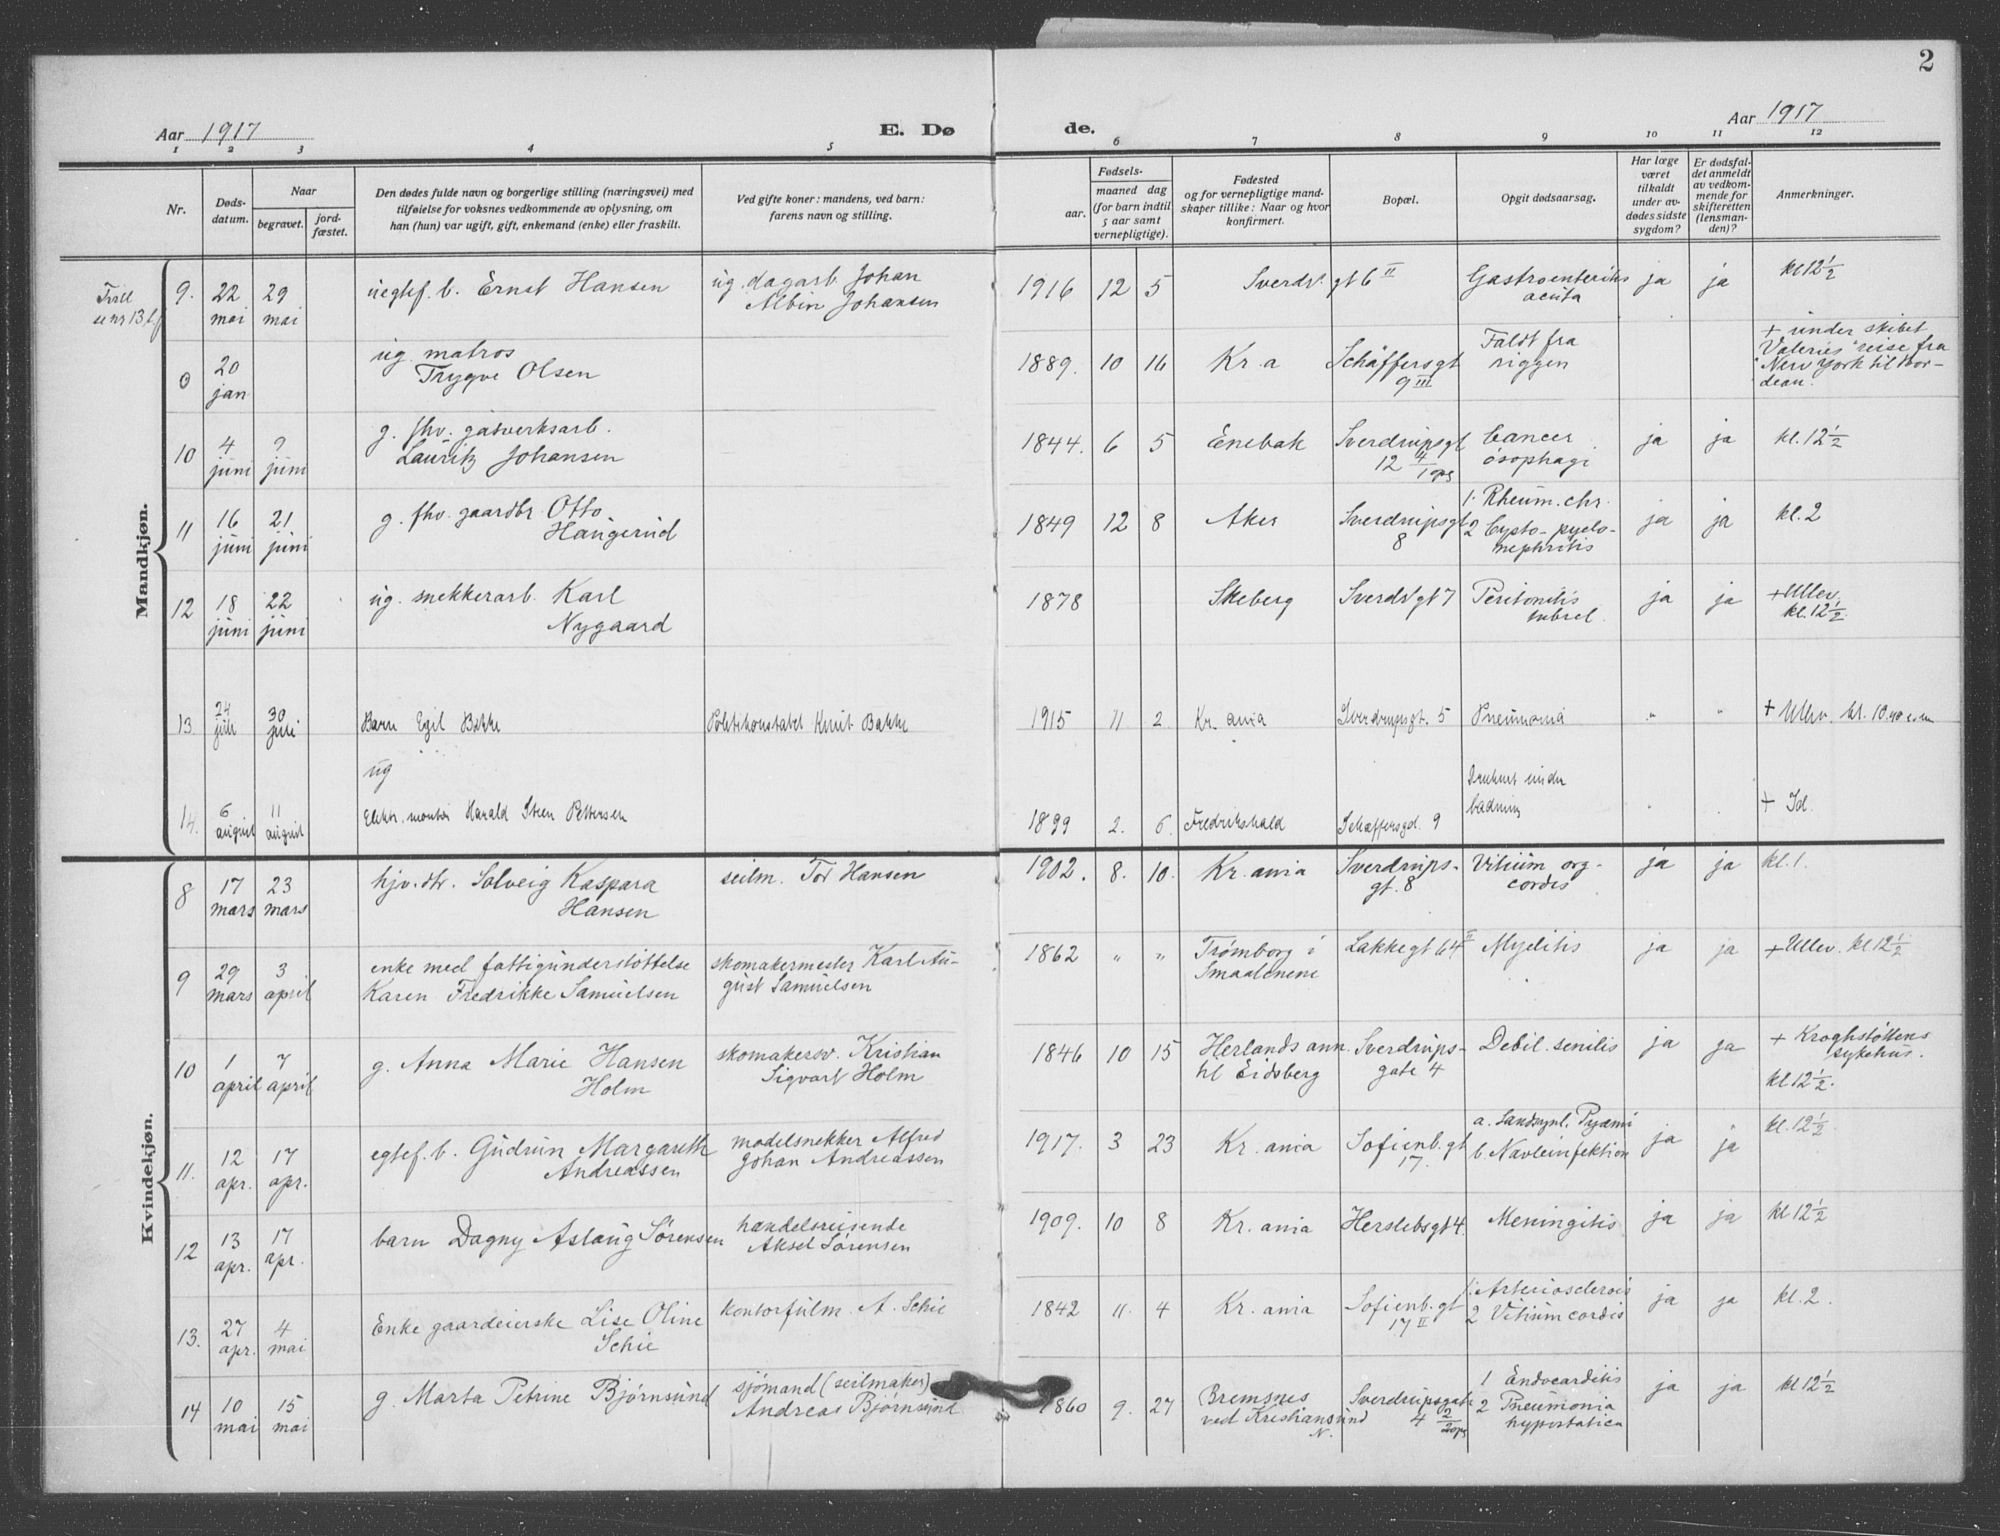 2
Aar 1917
E. Dø
de.
Aar 1917
1 2 3 4 5 6 7 8 9 10 11 12
Nr.
Døds-
datum.
Naar
begravet.
jord-
fæstet.
Den dødes fulde navn og borgerlige stilling (næringsvei) med
tilføielse for voksnes vedkommende av oplysning, om
han (hun) var ugift, gift, enkemand (enke) eller fraskilt.
Ved gifte koner: mandens, ved barn:
farens navn og stilling.
Fødsels-
aar.
maaned dag
(for barn indtil
5 aar samt
vernepligtige).
Fødested
og for vernepligtige mand-
skaper tillike: Naar og hvor
konfirmert.
Bopæl.
Opgit dødsaarsag.
Har læge
været
tilkaldt
under av-
dødes sidste
sygdom?
Er dødsfal-
det anmeldt
av vedkom-
mende for
skifteretten
(lensman-
den)?
Anmerkninger.
Mandkjøn.
9. 22 29 uegtef. b. Ernst Hansen ug. dagarb. Johan 1916 12 5 Sverdr. gt 6 II Gastroenteritis ja ja kl 12 1/2
mai mai Albin Johansen acuta
0 20 ug. matros 1889. 10 16 Kr.a Schäffersgt Faldt fra + under skibet
jan Trygve Olsen 9 III riggen "Valeries" reise fra
New York til Bor-
deau.
10 4 9 g. fhv. gasverksarb. 1844. 6 5 Enebak Sverdrupsgt Cancer ja ja kl. 12 1/2
juni juni Lauritz Johansen 12 4/ øsophagi
11 16 21 g. fhv. gaardbr. Otto 1849 12 8 Aker Sverdrupsgt 1. Rheum. chr. ja ja kl. 2
juni juni Haugerud 8 2 Cysto-pyelo-
nephritis
12 18 22 ug. snekkerarb. Karl 1878 Skeberg Sverdr gt 7 Peritonitis ja ja + Ullev.
juni juni Nygaard tubrel. kl. 12 1/2
13. 24 30 Barn Egil Bakke Politikonstabel Knut Bakke 1915 11 2. Kr. ania Sverdrupsgt. 5 Pneumonia " " + Ullev. kl. 10.40
juli juli
14. 6 11 ug 1899 2. 6. Fredrikshald Schæffersgd. 9 Druknet under + Id.
august august Elektr. montør Harald Steen Pettersen badning
Kvindekjøn.
8 17 23 hjv. dtr. Solveig Kaspara seilm. Tor Hansen 1902. 8. 10. Kr. ania Sverdrups- Vitium org- ja ja kl. 1.
mars mars Hansen gt. 8 cordis
9 29 3 enke med fattigunderstöttelse skomakermester Karl Au- 1862 " " Trømborg i Lakkegt 64 II Myelitis ja ja + Ullev. kl 12 1/2
mars april Karen Fredrikke Samuelsen gust Samuelsen Smaalenene
10 1 7 g. Anna Marie Hansen skomakersv. Kristian 1846 10 15 Herlands ann. Sverdrups- Debil. senilis ja ja + Kroghstøttens
april april Holm Sigvart Holm til Eidsberg gate 4 sykehus.
kl 12 1/2.
11. 12 17 egtef. b. Gudrun Margareth modelsnekker Alfred 1917. 3 23 Kr. ania Sofienb. gt a. Pyæmi ja ja kl. 12 1/2
apr. apr. Andreassen Johan Andreassen 17. b. Navleinfektion
12 13 17 barn Dagny Aslaug Sørensen handelsreisende 1909. 10 8 Kr. ania Herslebsgt 4. Meningitis ja ja kl 12 1/2
apr. apr. Aksel Sørensen
13. 27 4 Enke gaardeierske Lise Oline kontorfulm. A. Schie 1842 11. 4 Kr. ania Sofienb. gt 1. Arteriosclerosis ja ja kl. 2.
apr. mai Schie 17 II 2 Vitium cordis
14 10 15 g. Marta Petrine Bjørnsund sjömand (seilmaker) 1860 9. 27 Bremsnes Sverdrupsgate 1 Endocarditis ja ja kl 12 1/2
mai mai Andreas Bjørnsund ved Kristiansund 4 2/ 2 Pneumonia
N. hypostatica